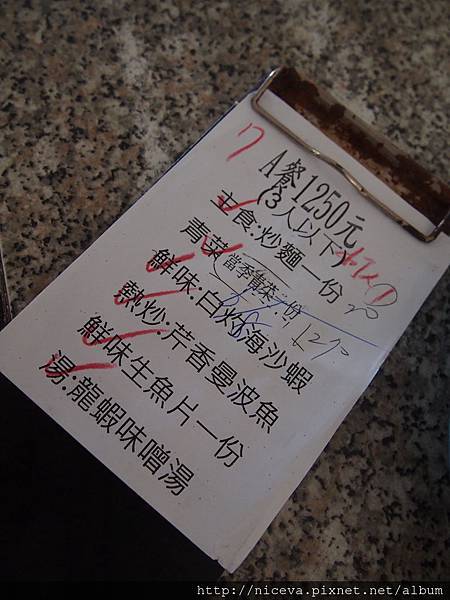 17
A餐1250元
(3人以下)
主食:炒麵一份
青菜:當季青菜一份
鮮味:白灼海沙蝦
熱炒:芹香曼波魚
鮮味生魚片一份
湯:龍蝦味噌湯
http://niceva.pixnet.net/album